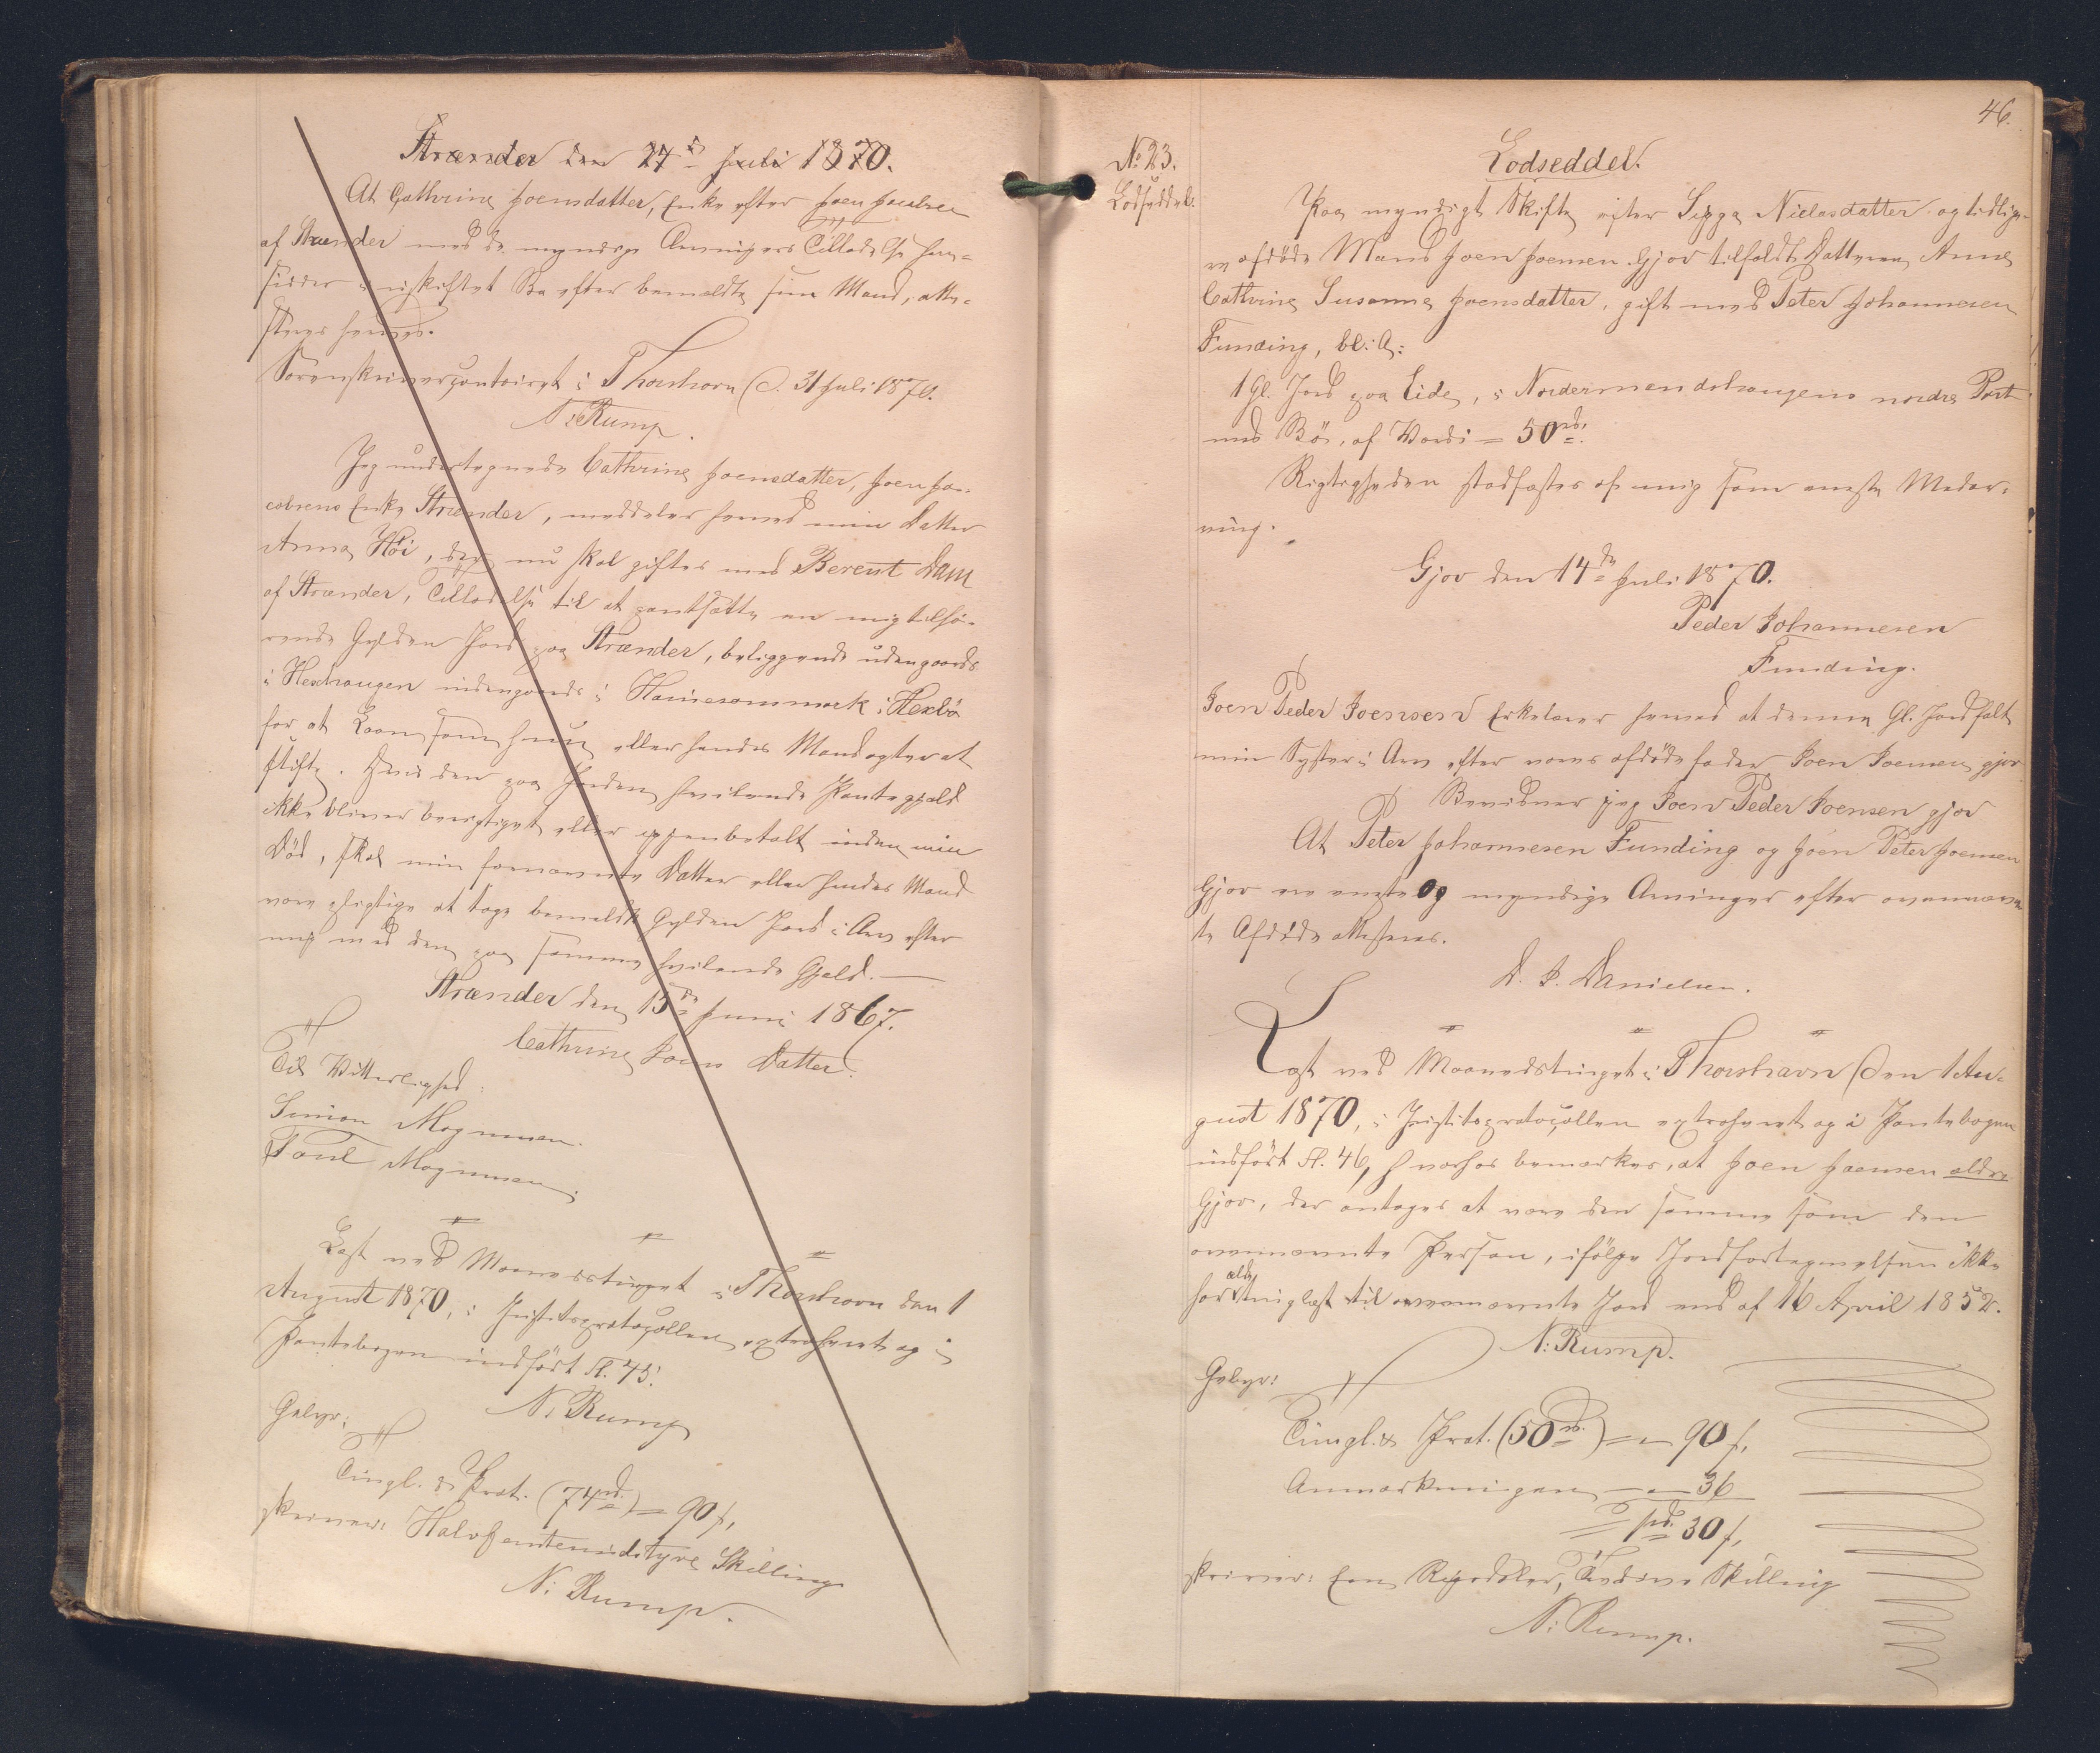 Strænder den 27de Juli 1870.
At Cathrine Joensdatter, Enke efter Joen Jacobsen
af Strænder med de myndige Arvingers Tilladelse hen-
sidder i uskiftet Bo efter bemeldte sin Mand, atte-
steres herved.
Sorenskrivercontoiret i Thorshavn d. 31 Juli 1870.
N: Rump.
Jeg undertegnede Cathrine Joensdatter, Joen Ja-
cobsens Enke Strænder, meddeler herved min Datter
Anna Höi, der nu skal giftes med Berent Dam
af Strænder, Tilladelse til at pantsætte en mig tilhö-
rende Gylden Jord paa Strænder, beliggende udengaards
i Hexhaugen indengaards i Hexbö
for at Laan som hun eller hendes Mand agter at
stifte. Hvis den paa Jorden hvilende Pantegjæld
ikke bliver berigtiget eller igjenbetalt inden min
Död, skal min fornævnte Datter eller hendes Mand
være pligtige at tage bemeldte Gylden Jord i Arv efter
mig med den paa samme hvilende Gjæld.—
Strænder den 15de Juni 1867.
Cathrine Joens Datter.
Til Vitterlighed:
Simon Magnusen.
Poul Magnusen.
Læst ved Maanedstinget i Thorshavn den 1
August 1870, i Justitsprotocollen extraheret og i
Pantebogen indfört Fl. 45.
N: Rump
Gebyr:
Tingl. & Prot. (74rd.) = 90 s,
skriver: Halvfemtesindstyve Skilling
N: Rump.
46.
No 23.
Lodseddel.
Lodseddel.
Paa myndigt Skifte efter Sigga Nielasdatter og tidlige-
re afdöde Mand Joen Joensen Gjov tilfaldt Datteren Anne
Cathrine Susanne Joensdatter, gift med Peter Johannesen
Funding, bl: A:
1 Gl. Jord paa Eide, i Nordermandshaugens nordre Part
med Bö, af Værdi = 50rd.
Rigtigheden stadfæstes af mig som eneste Medar-
ving.
Gjov den 14de Juli 1870.
Peder Johannesen
Funding.
Joen Peder Joensen Erklærer herved at denne Gl. Jord faldt
min Syster i Arv efter vores afdöde fader Joen Joensen gjov
Bevidner jeg Joen Peder Joensen gjov
At Peter Johannesen Funding og Joen Peter Joensen
Gjov ere eneste og myndige Arvinger efter ovennævn-
te Afdöde attesteres.
D. J. Danielsen.
Læst ved Maanedstinget i Thorshavn den 1 Au-
gust 1870, i Justitsprotocollen extraheret og i Pantebogen
indfört Fl. 46, hvorhos bemærkes, at Joen Joensen ældre
Gjov, der antages at være den samme som den
ovennævnte Person, ifölge Jordfortegnelsen ikke
har ældre tinglæst til ovennævnte Jord end af 16 April 1852.
N: Rump.
Gebyr:
Tingl. & Prot. (50rd.) = 90 s,
Anmærkningen — 36
= 1rd. 30 s,
skriver: Een Rigsdaler, Tredive Skilling
N: Rump.